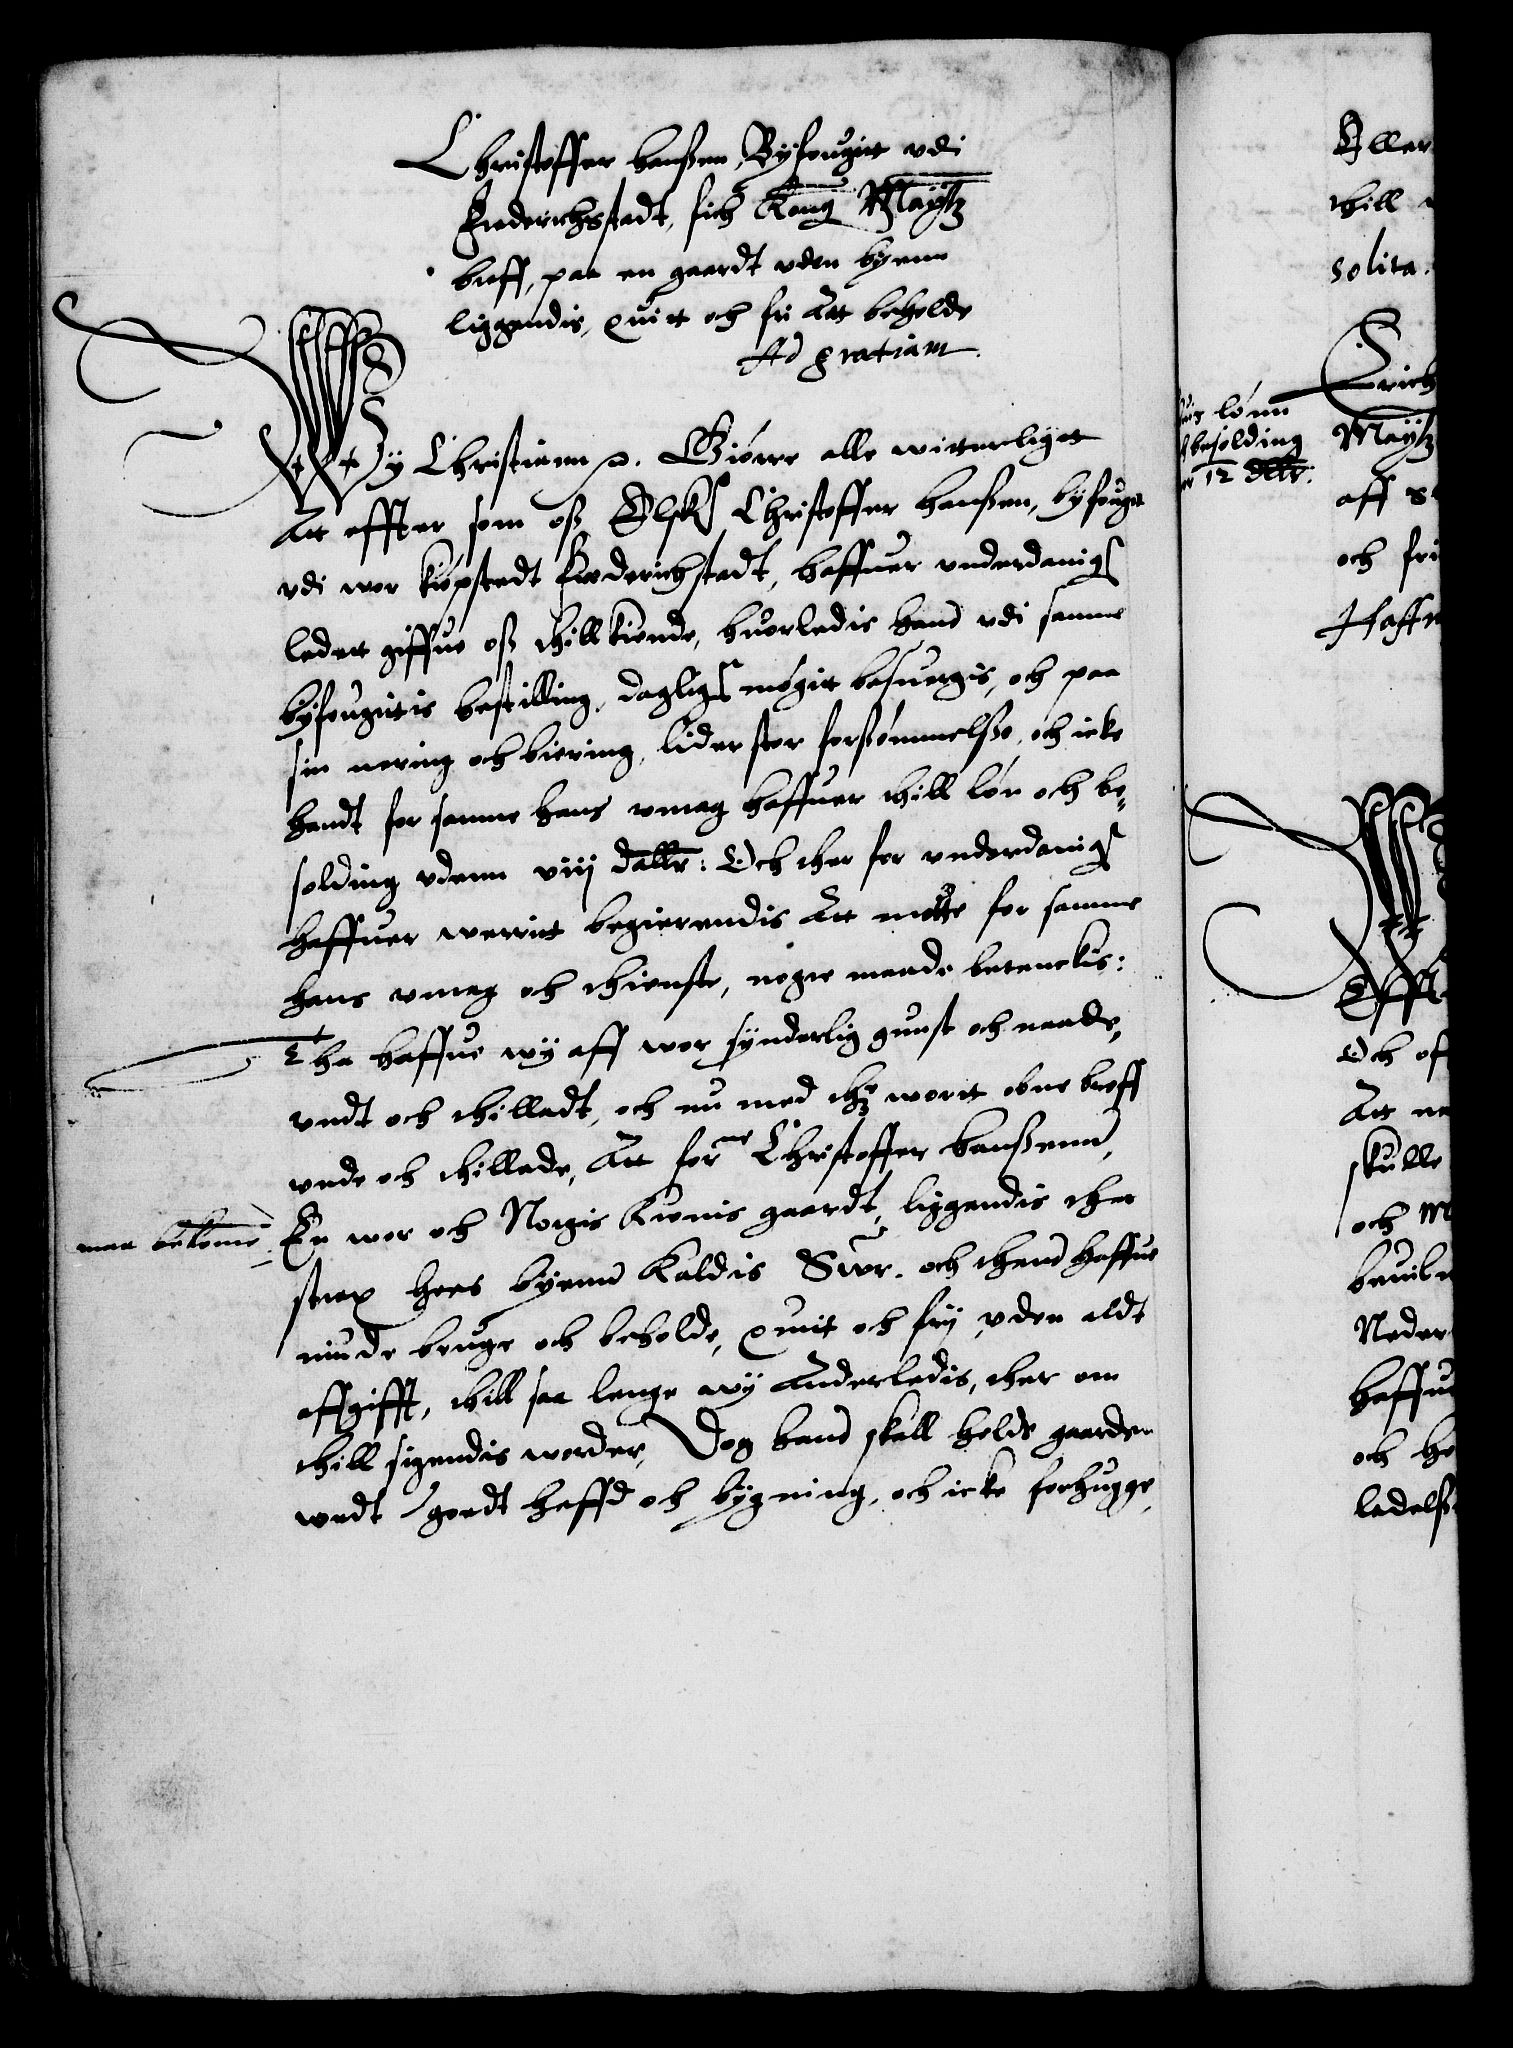 Christoffer hanßen, Byfougitt vdi
Frederichsstadt, fich Kong Maytz
breff, paa en gaardt vden byenn
liggendis, quitt och fri Att beholde
Ad gratiam.
Wy Christiann etc. Giørre alle witterligt
Att effter som oß Elsk Christoffer hanßen, byfougt
vdi wor kiøpstedt Frederichstadt, haffuer vnderdanigst
ladet giffue oß thillkiende, huorledis hand vdi samme
byfougittis bestilling, dagligt møgitt besuergis, och paa
sin nering och biering, lider stor forßømmelße, och icke
handt for samme hans vmag haffuer thill løn och be=
solding vdenn viij dallr: Och ther for vnderdanigst
haffuer werrit begierendis Att motte for samme
hans vmag och thienste, nogre maade betenckis:
Tha haffue wy aff wor synderlig gunst och naade,
vndt och thilladt, och nu med thette wort obne breff
vnde och thillade, Att forne Christoffer hanßenn,
maa bekome
En wor och Norgis Kronis gaardt, liggendis ther
strax hoes byenn kaldis Swr. och thend haffue
niude bruge och beholde, quit och frij vden aldt
affgifft, thill saa lenge wy Anderledis, ther om
thill sigendis worder, Dog hand skall holde gaarden
wedt goedt heffd och bygning, och icke forhugge,
lønn
besolding
12 dllr.
Eller
thill
solita.
Erich
Maytz
aff
och fri
Haffn
Effte
Och
Att
skulle
och
Neder
haffue
och